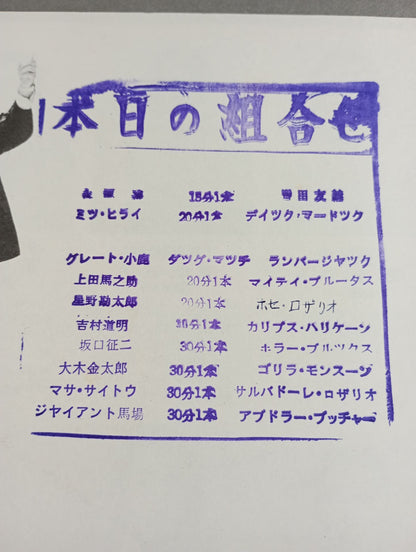 本日の組合せ
15分1本
ミツ・ヒライ 20分1本 デイツク・マードツク
グレート・小鹿 タツグ・マツチ ランバージヤツク
上田馬之助 20分1本 マイテイ・ブルータス
星野勘太郎 20分1本 ホセ・ロザリオ
吉村道明 30分1本 カリプス・ハリケーン
坂口征二 30分1本 キラー・ブルツクス
大木金太郎 30分1本 ゴリラ・モンスーン
マサ・サイトウ 30分1本 サルバドーレ・ロザリオ
ジヤイアント馬場 30分1本 アブドラー・ブッチャー